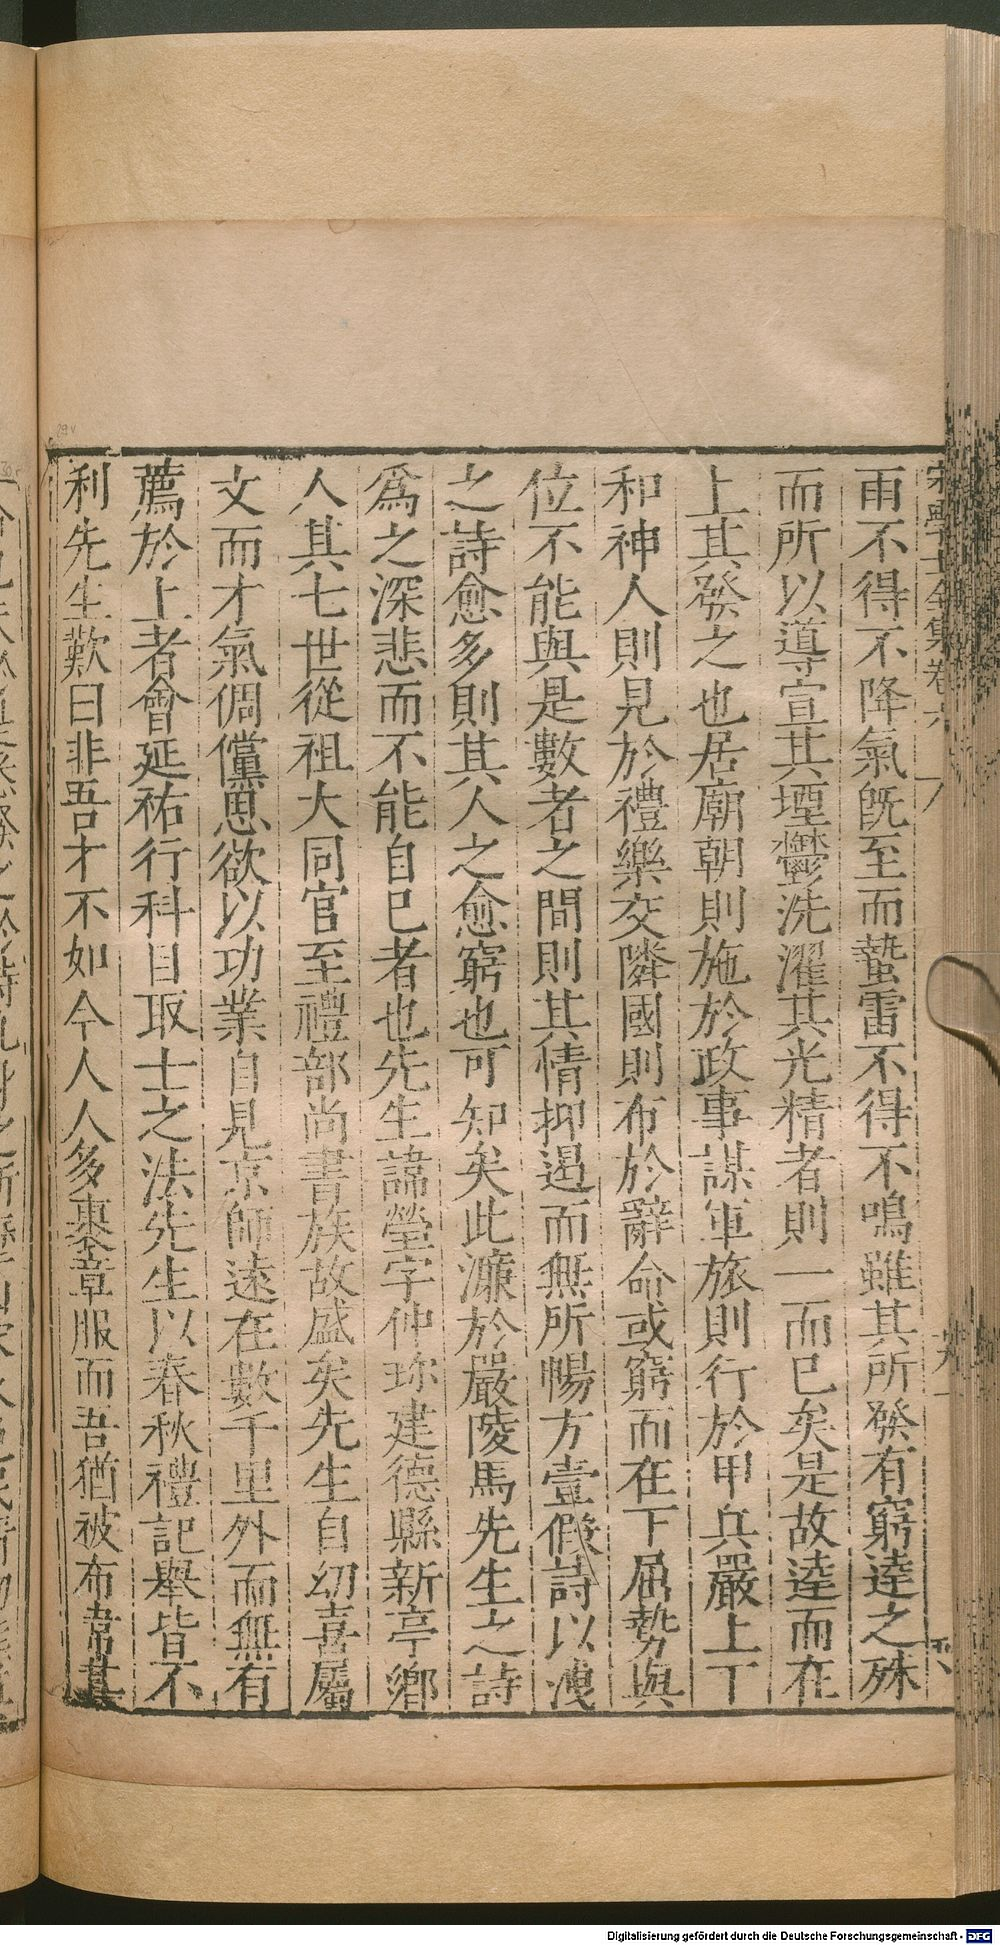 雨不得不降氣旣至而蟄雷不得不鳴雖其所發有窮逹之殊
而所以導宣其堙鬱洗濯其光精者則一而已矣是故逹而在
上其發之也居廟朝則施於政事謀軍旅則行於甲兵嚴上下
和神人則見於禮樂交隣國則布於辭命或窮而在下屈勢與
位不能與是數者之間則其情抑遏而無所暢方壹假詩以洩
之詩愈多則其人之愈窮也可知矣此濂於嚴陵馬先生之詩
爲之深悲而不能自已者也先生諱瑩字仲珍建德縣新亭鄉
人其七世從祖大同官至禮部尚書族故盛矣先生自幼喜屬
文而才氣倜儻思欲以功業自見京師遠在數千里外而無有
薦於上者會延祐行科目取士之法先生以春秋禮記舉皆不
利先生歎曰非吾才不如今人人多裹章服而吾猶被布韋其
Digitalisierung gefördert durch die Deutsche Forschungsgemeinschaft - DFG